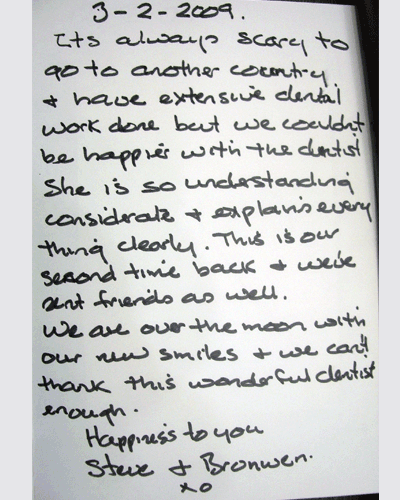 3-2-2009.
Its always scary to
go to another country
+ have extensive dental
work done but we couldn't
be happier with the dentist
She is so understanding
considerate + explains every
thing clearly. This is our
second time back + we've
sent friends as well.
We are over the moon with
our new smiles + we can't
thank this wonderful dentist
enough.
Happiness to you
Steve + Bronwen.
xo